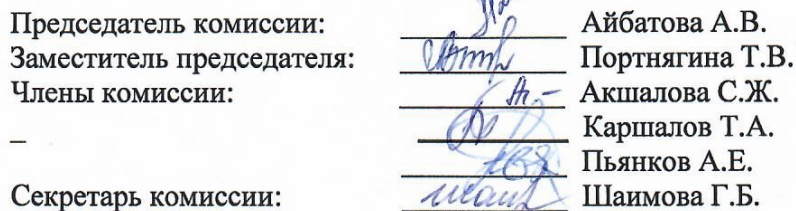 Председатель комиссии: Айбатова А.В.
Заместитель председателя: Портнягина Т.В.
Члены комиссии: Акшалова С.Ж.
_ Каршалов Т.А.
Пьянков А.Е.
Секретарь комиссии: Шаимова Г.Б.